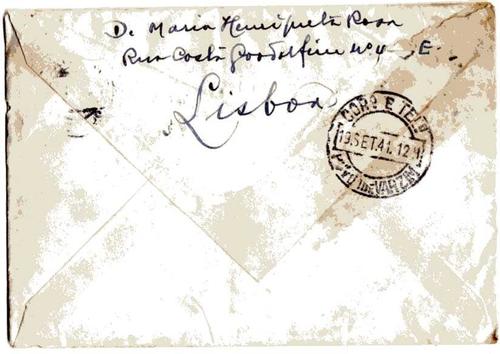 D. Maria Henriqueta Rosa
Rua Costa Goodolfim nº 4 E.
Lisboa
CORR E TELE
19.SET.41.12H
PÓVOA DE VARZIM